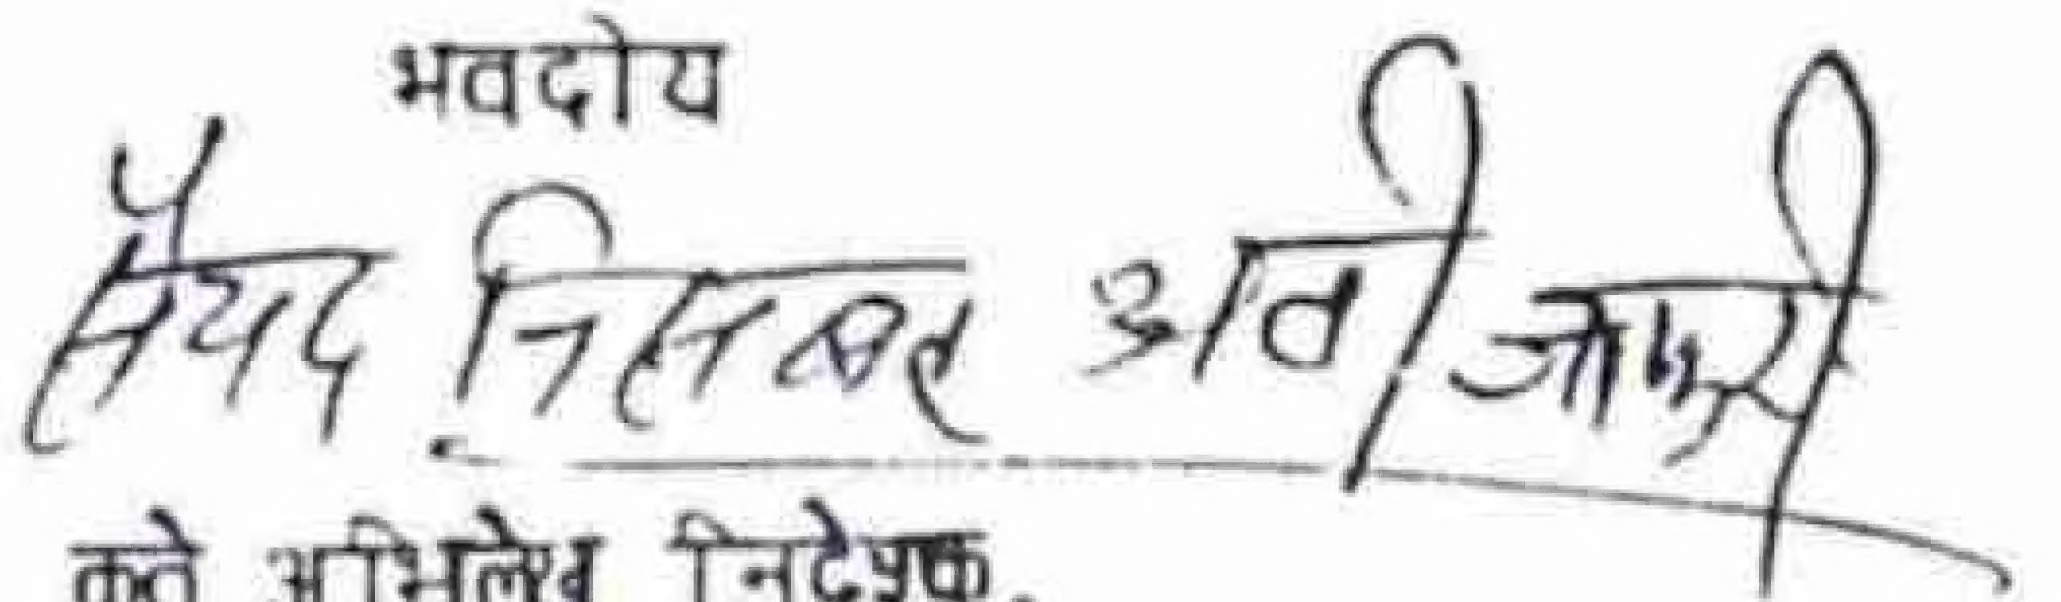 भवदीय
सैयद निसबत अली जाफरी
कृते अभिलेख निदेशक.